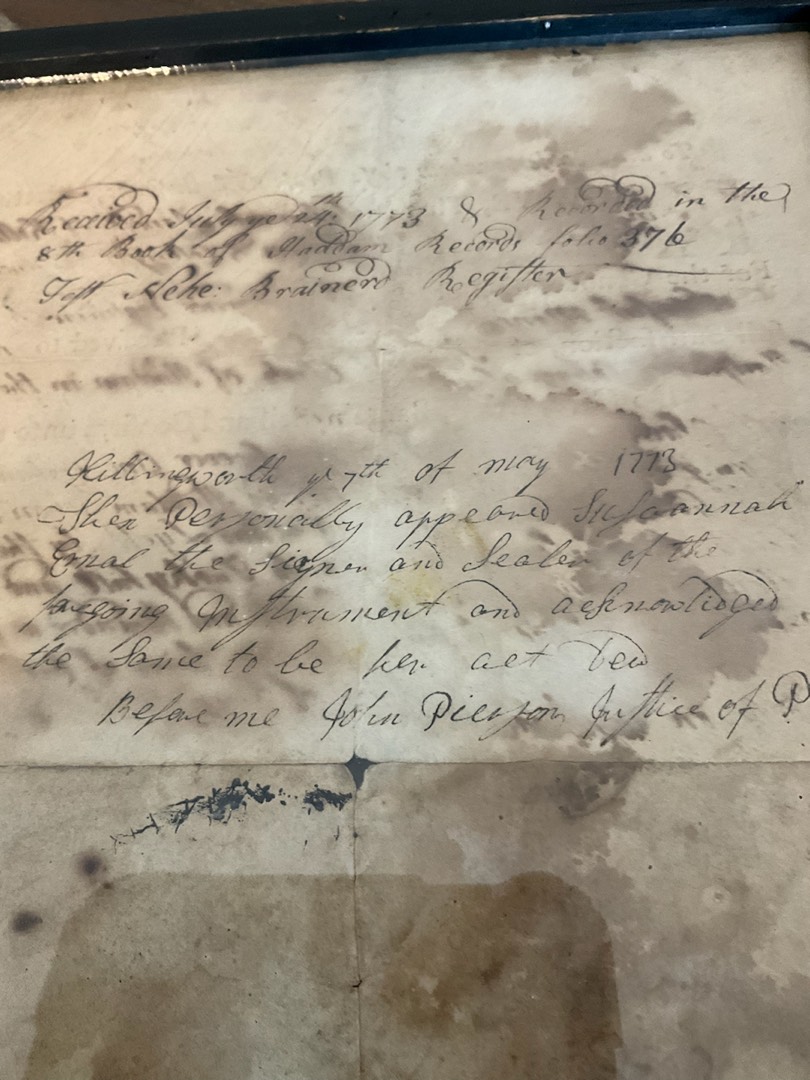 Received July ye 24th 1773 & Recorded in the
8th Book of Haddam Records folio 376
Test Nehe: Brainerd Register
Killingworth ye 7th of may 1773
Then Personally appeared Susaannah
the Signer and Sealer of the
foregoing Instrument and acknowlidged
the Same to be her act Deed
Before me John Pierson Justice of P